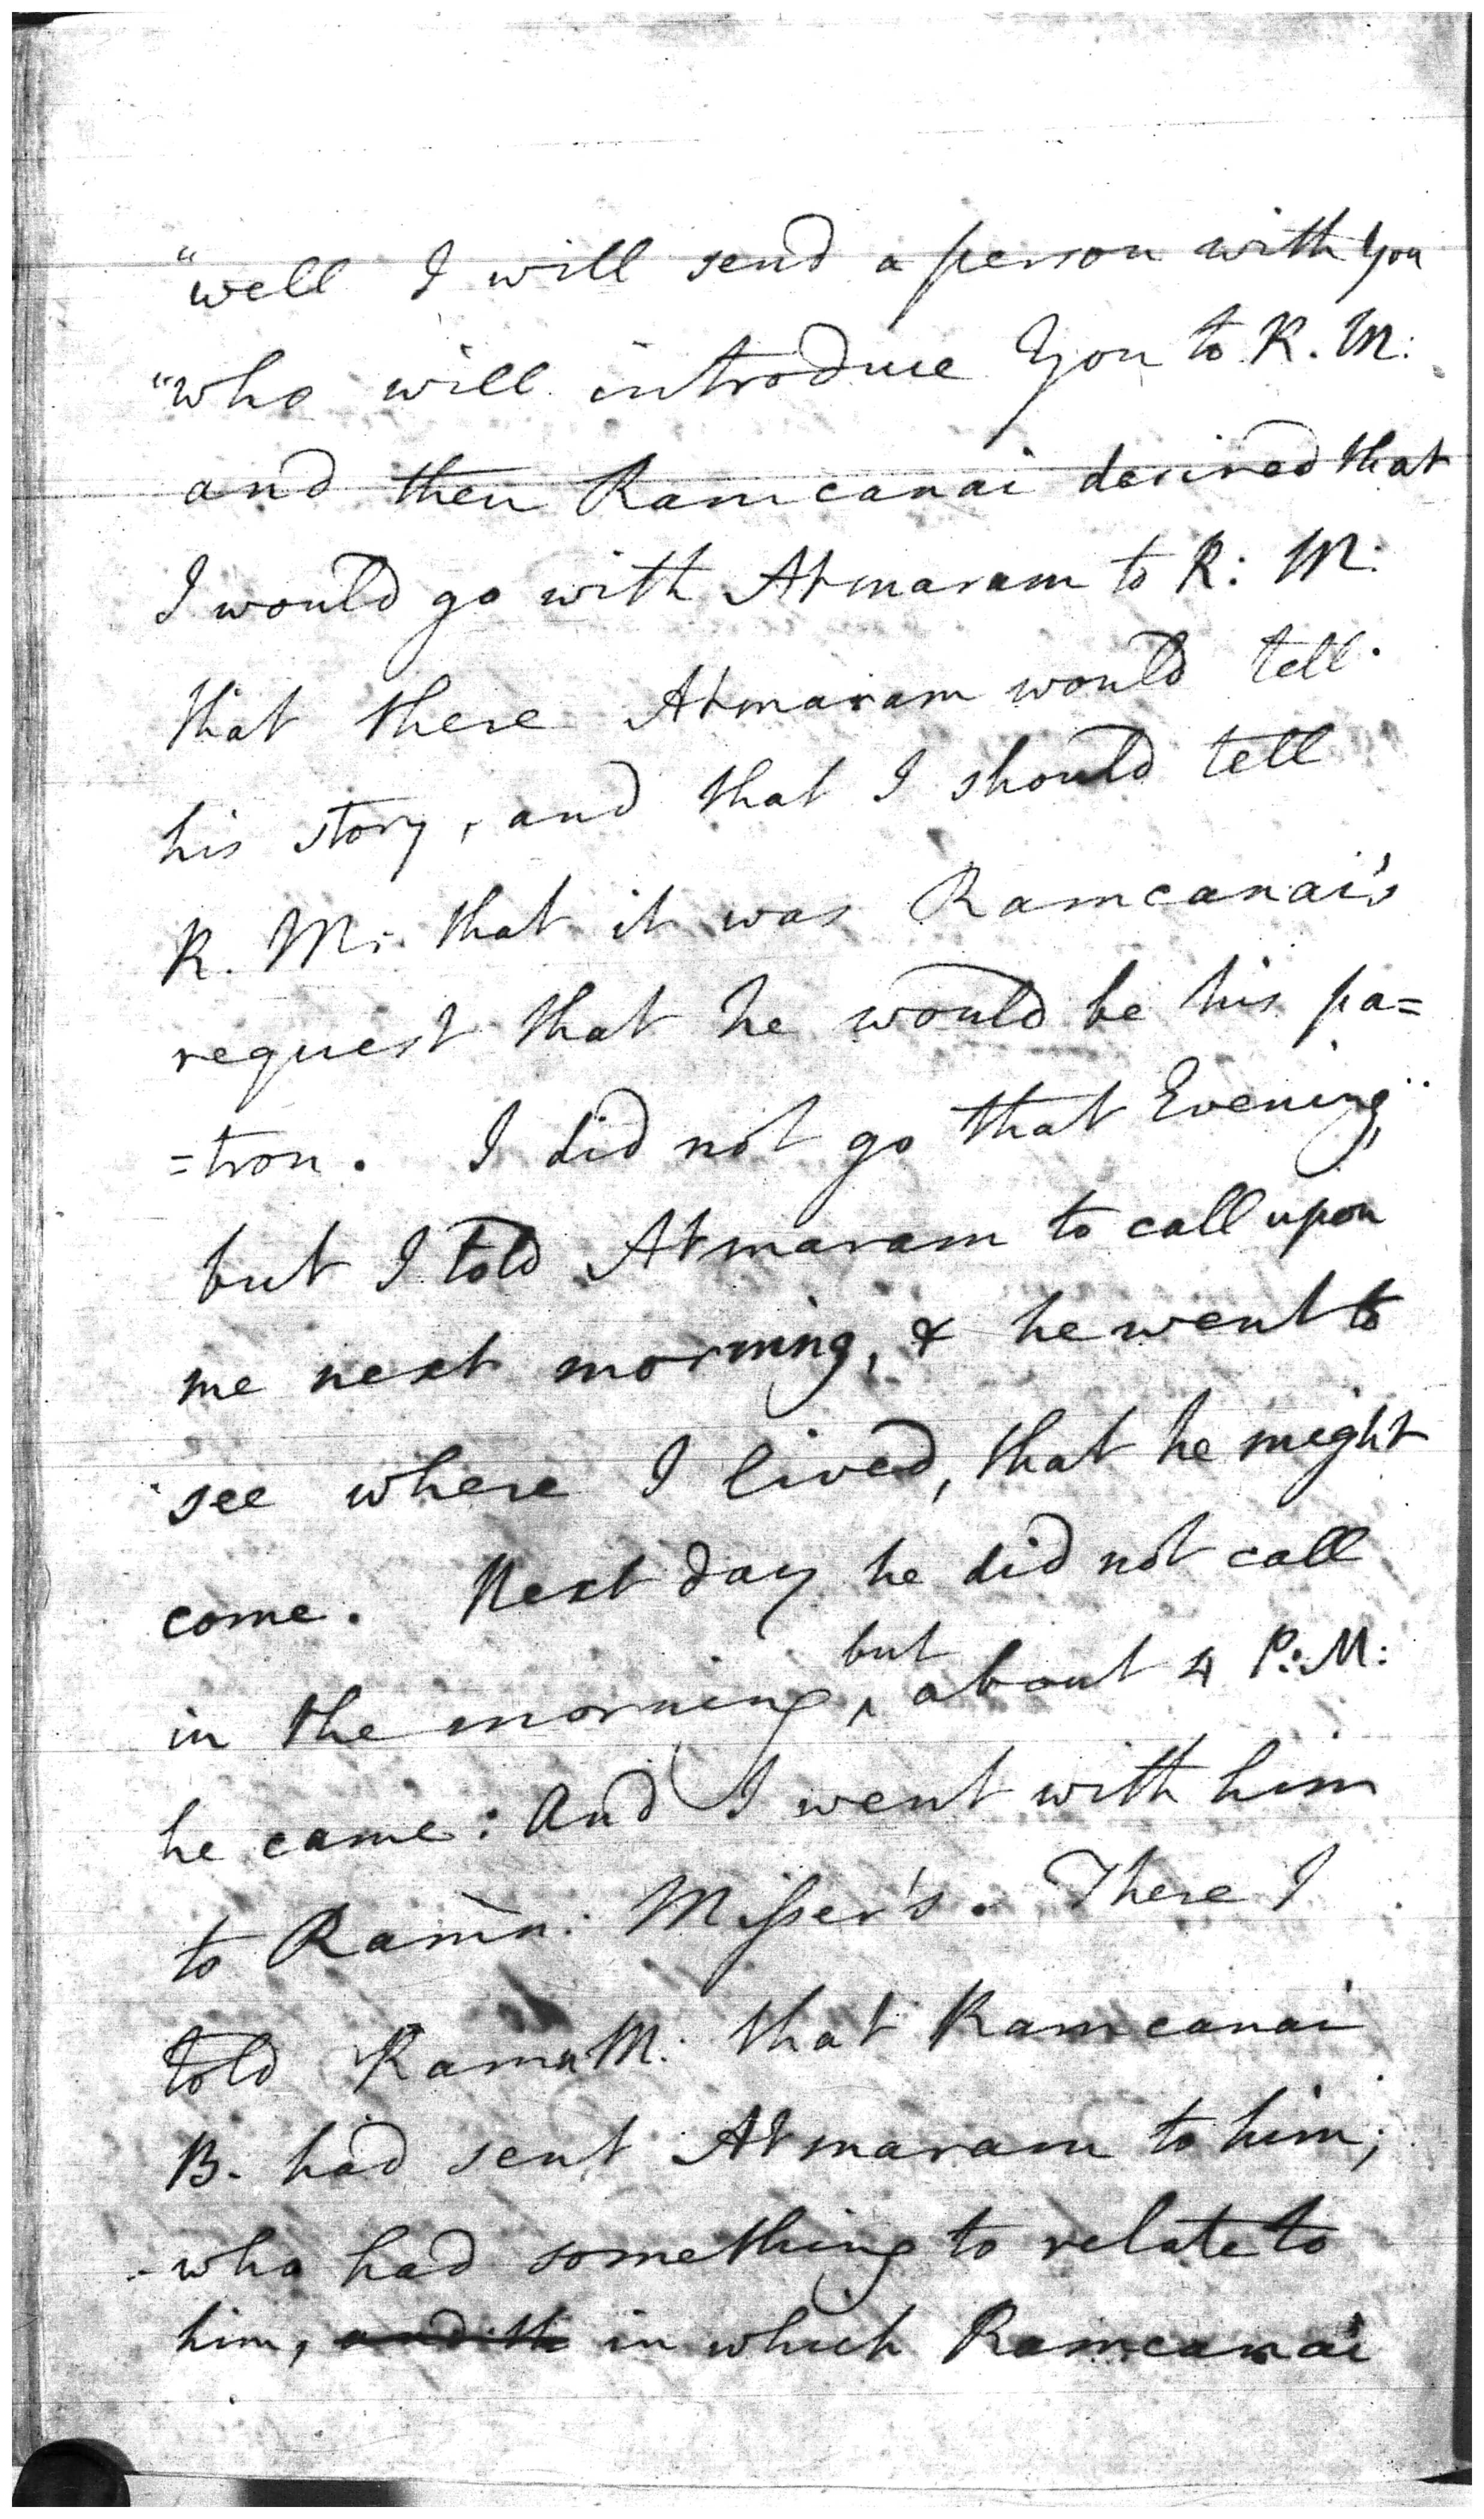 "well I will send a person with you
"who will introduce You to R. M:
and then Ramcanai desired that
I would go with Atmaram to R: M:
that there Atmaram would tell
his story, and that I should tell
R. M: that it was Ramcanai's
request that he would be his pa=
=tron. I did not go that Evening,
but I told Atmaram to call upon
me next morning, & he went to
see where I lived, that he might
come. Next day he did not call
in the morning, but about 4 P:M:
he came: And I went with him
to Ramn: Misser's. There I
told Ramn M: that Ramcanai
B. had sent Atmaram to him;
who had something to relate to
him, and th in which Ramcanai